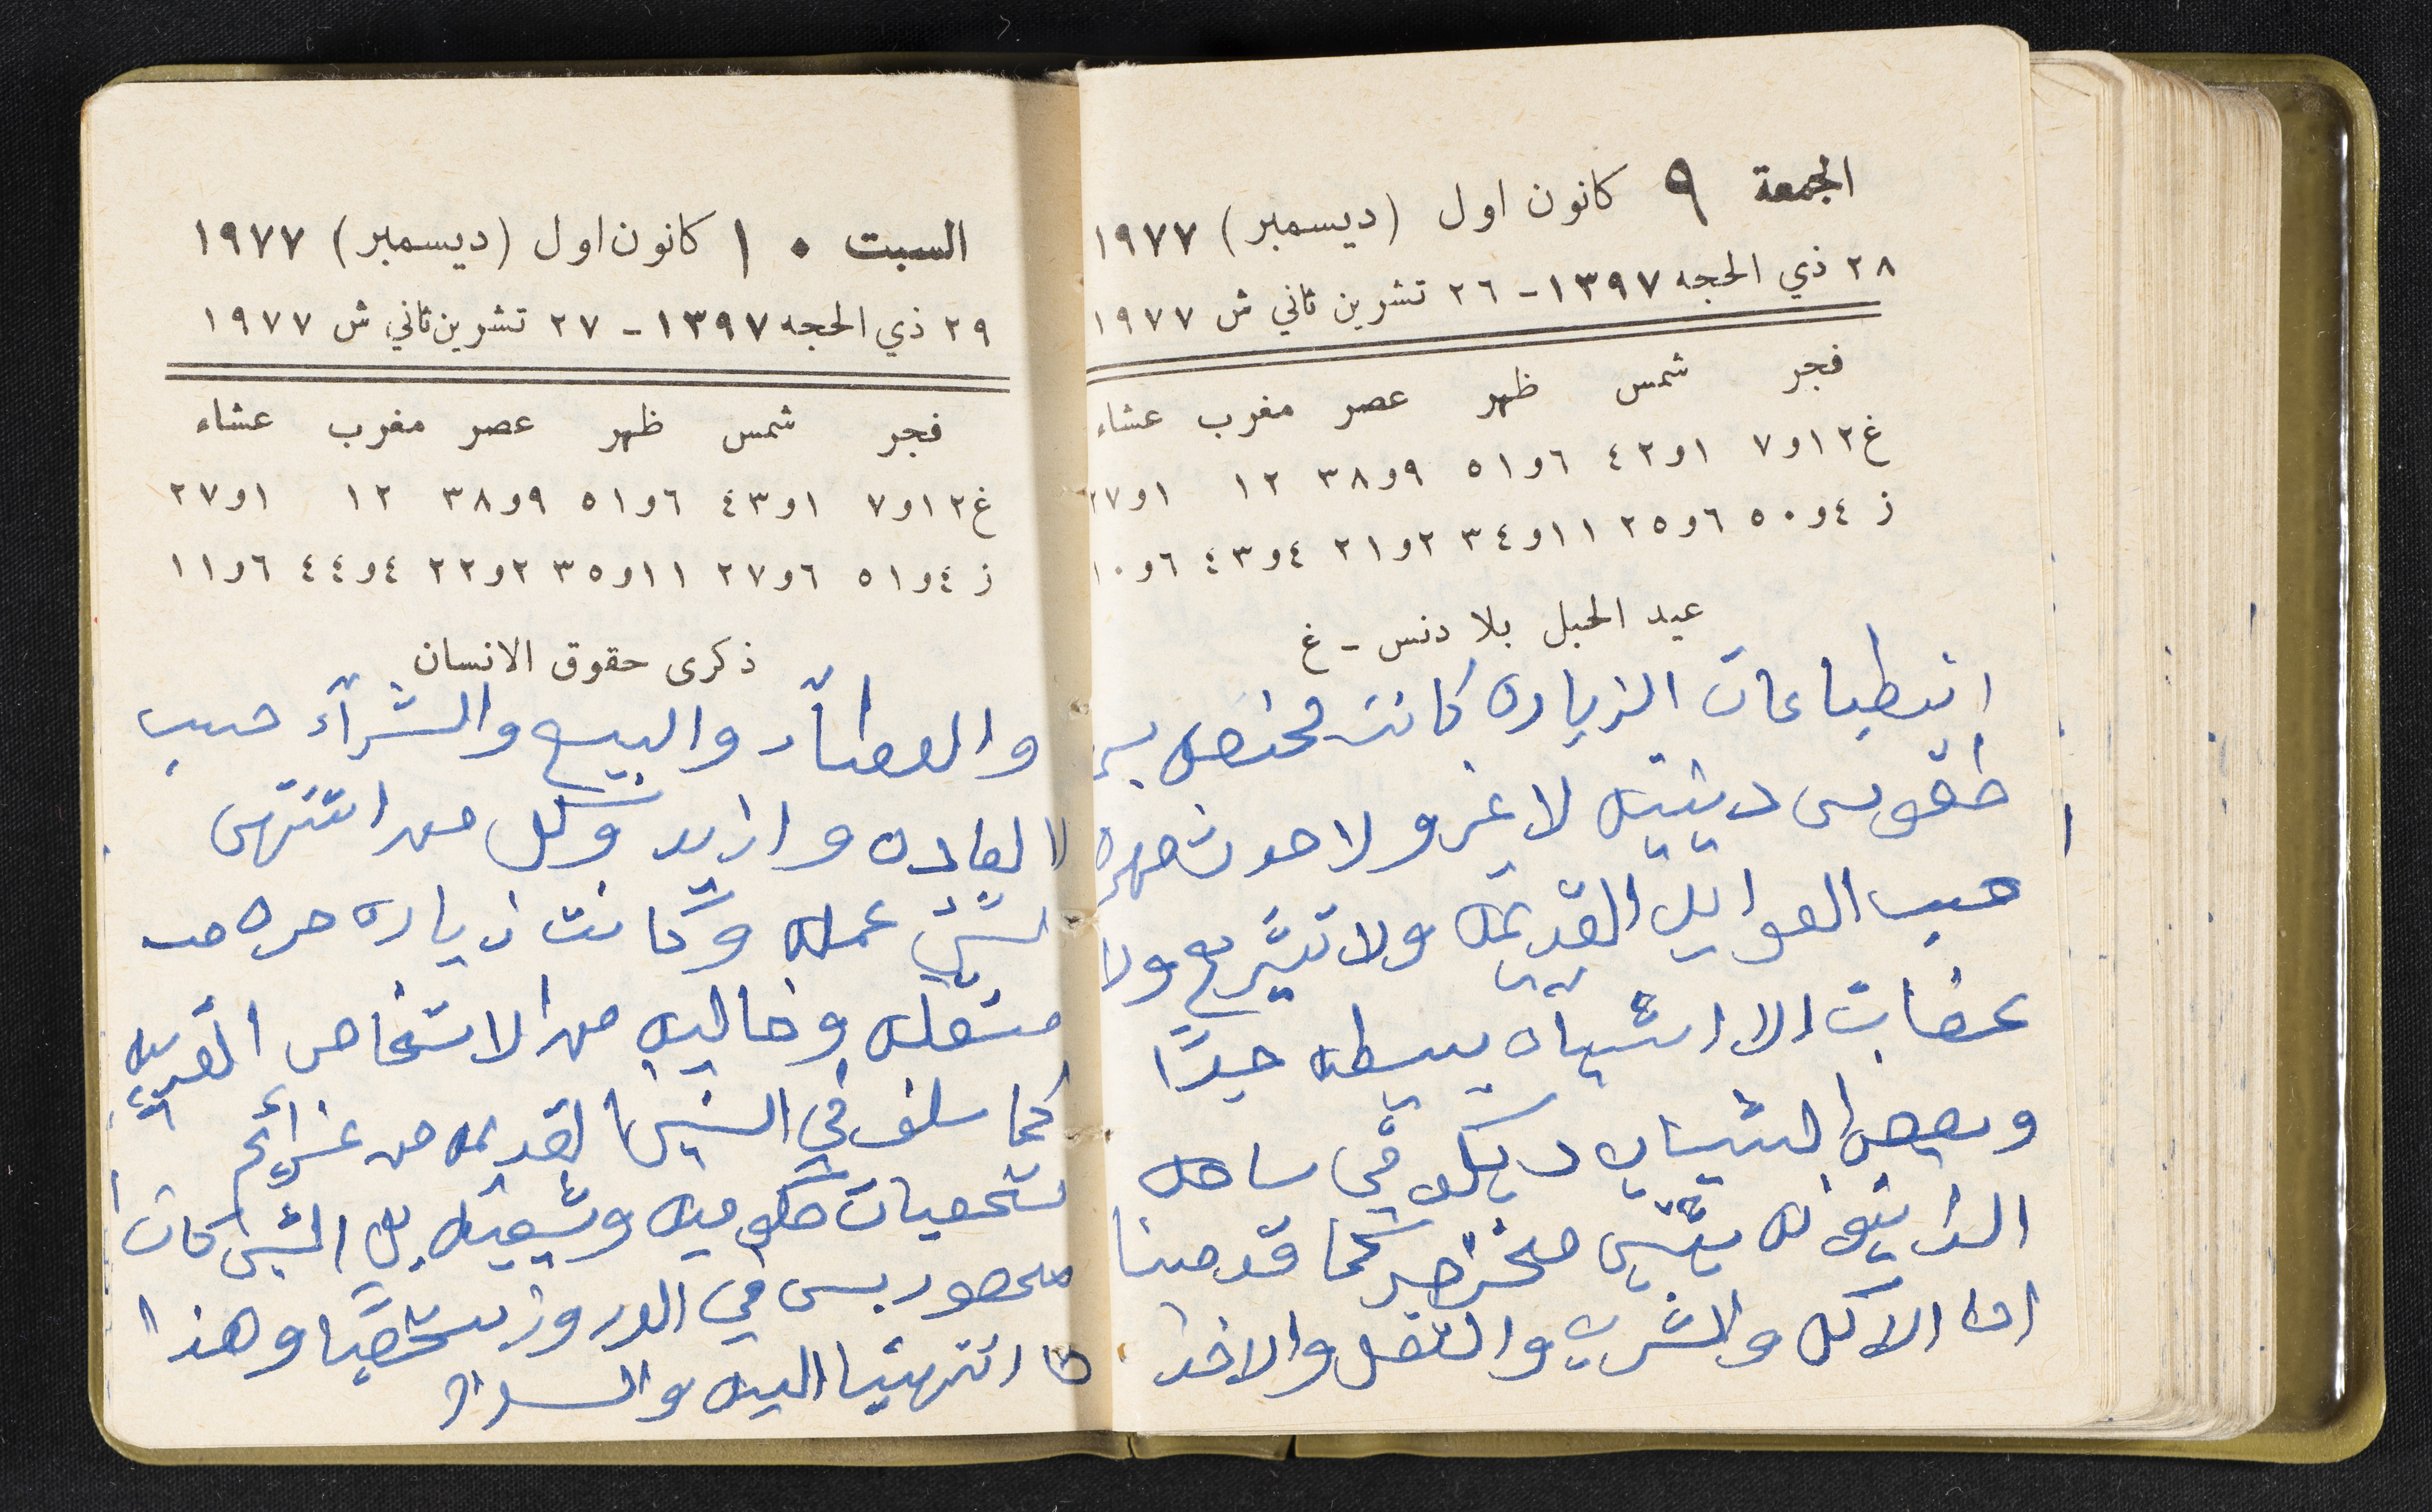 الجمعة ٩ كانون اول (ديسمبر) ١٩٧٧
٢٨ ذي الحجه ١٣٩٧ - ٢٦ تشرين ثاني ش ١٩٧٧
فجر شمس ظهر عصر مغرب عشاء
غ ١٢و٧ ١و٤٢ ٦و٥١ ٩و٣٨ ١٢ ١و٢٧
ز ٤و٥٠ ٦و٢٥ ١١و٣٤ ٢و٢١ ٤و٤٣ ٦و١٠
عيد الحبل بلا دنس - غ
انبطباعات الزياره كانت مختصه
طقوس دينيه لا غير ولا
حسب العوايل القديمه ولا تشريح ولا
الا اشياه بسيطه جدًا
وبعض الشباب دبكو في ساحه
كما قدمنا
اما الاكل والشرب والاخذ
السبت ١٠ كانون اول (ديسمبر) ١٩٧٧
٢٩ ذي الحجه ١٣٩٧ - ٢٧ تشرين ثاني ش ١٩٧٧
فجر شمس ظهر عصر مغرب عشاء
غ ١٢و٧ ١و٤٣ ٦و٥١ ٩و٣٨ ١٢ ١و٢٧
ز ٤و٥١ ٦و٢٧ ١١و٣٥ ٢و٢٢ ٤و٤٤ ٦و١١
ذكرى حقوق الانسان
والعطآء والبيع والشرآء حسب
العاده وازيد وكل من اشتهى
شي عمله وكانت زياره حره
مستقله وخاليه من الاشخاص الغريبه
كما سلف في السنين القديمه من
شخصيات حكوميه وشعبيه بل الشي كان
محصور بس في الدروز شخصيًا وهذا
ما انتهينا اليه والسلام